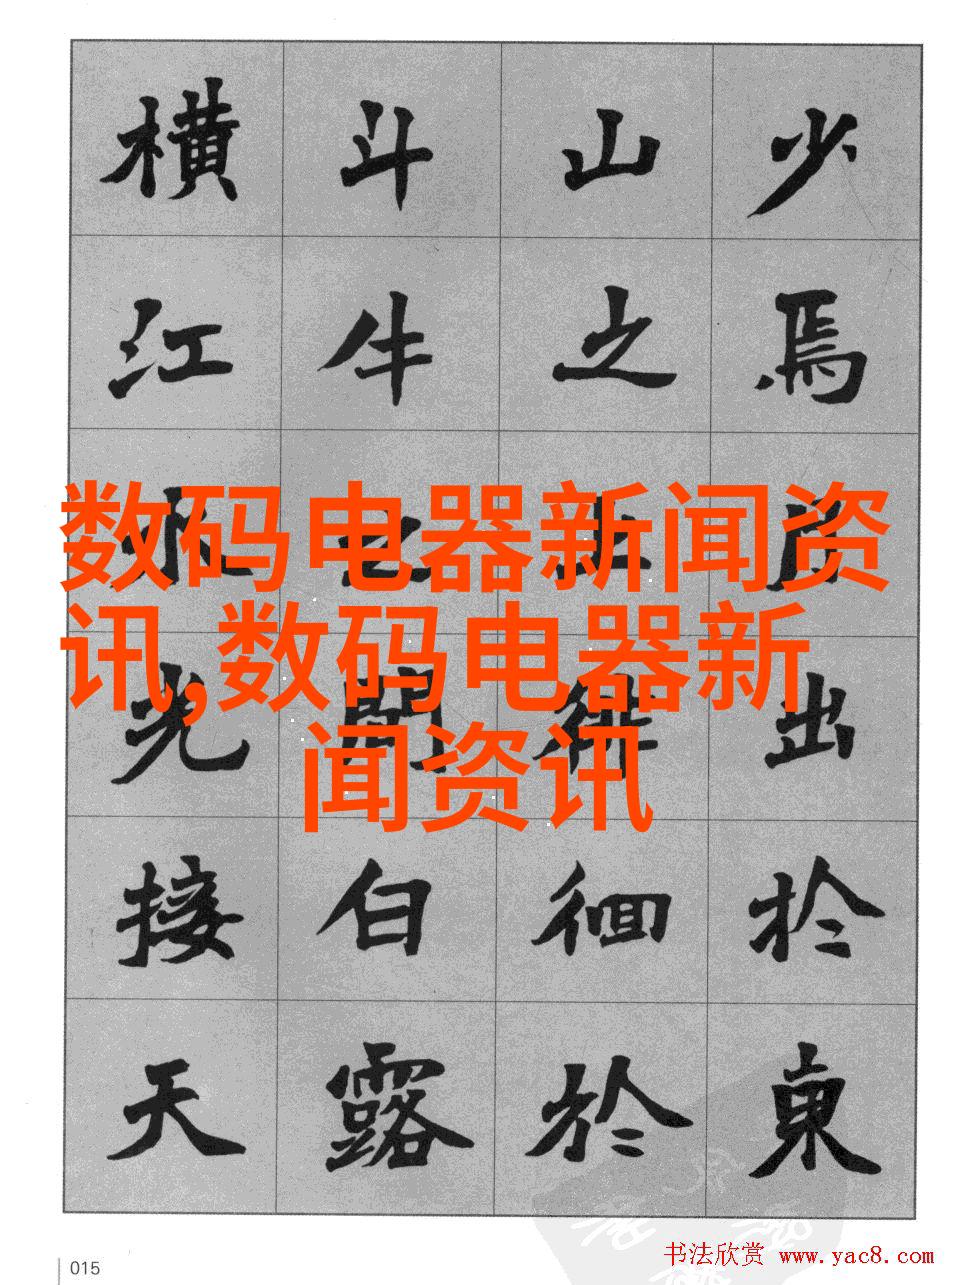 少焉月出扵東
山之上徘徊於
斗牛之間白露
横江水光接天
数码电器新闻资
讯,数码电器新
闻资讯
015
书法欣赏 www.yac8.com